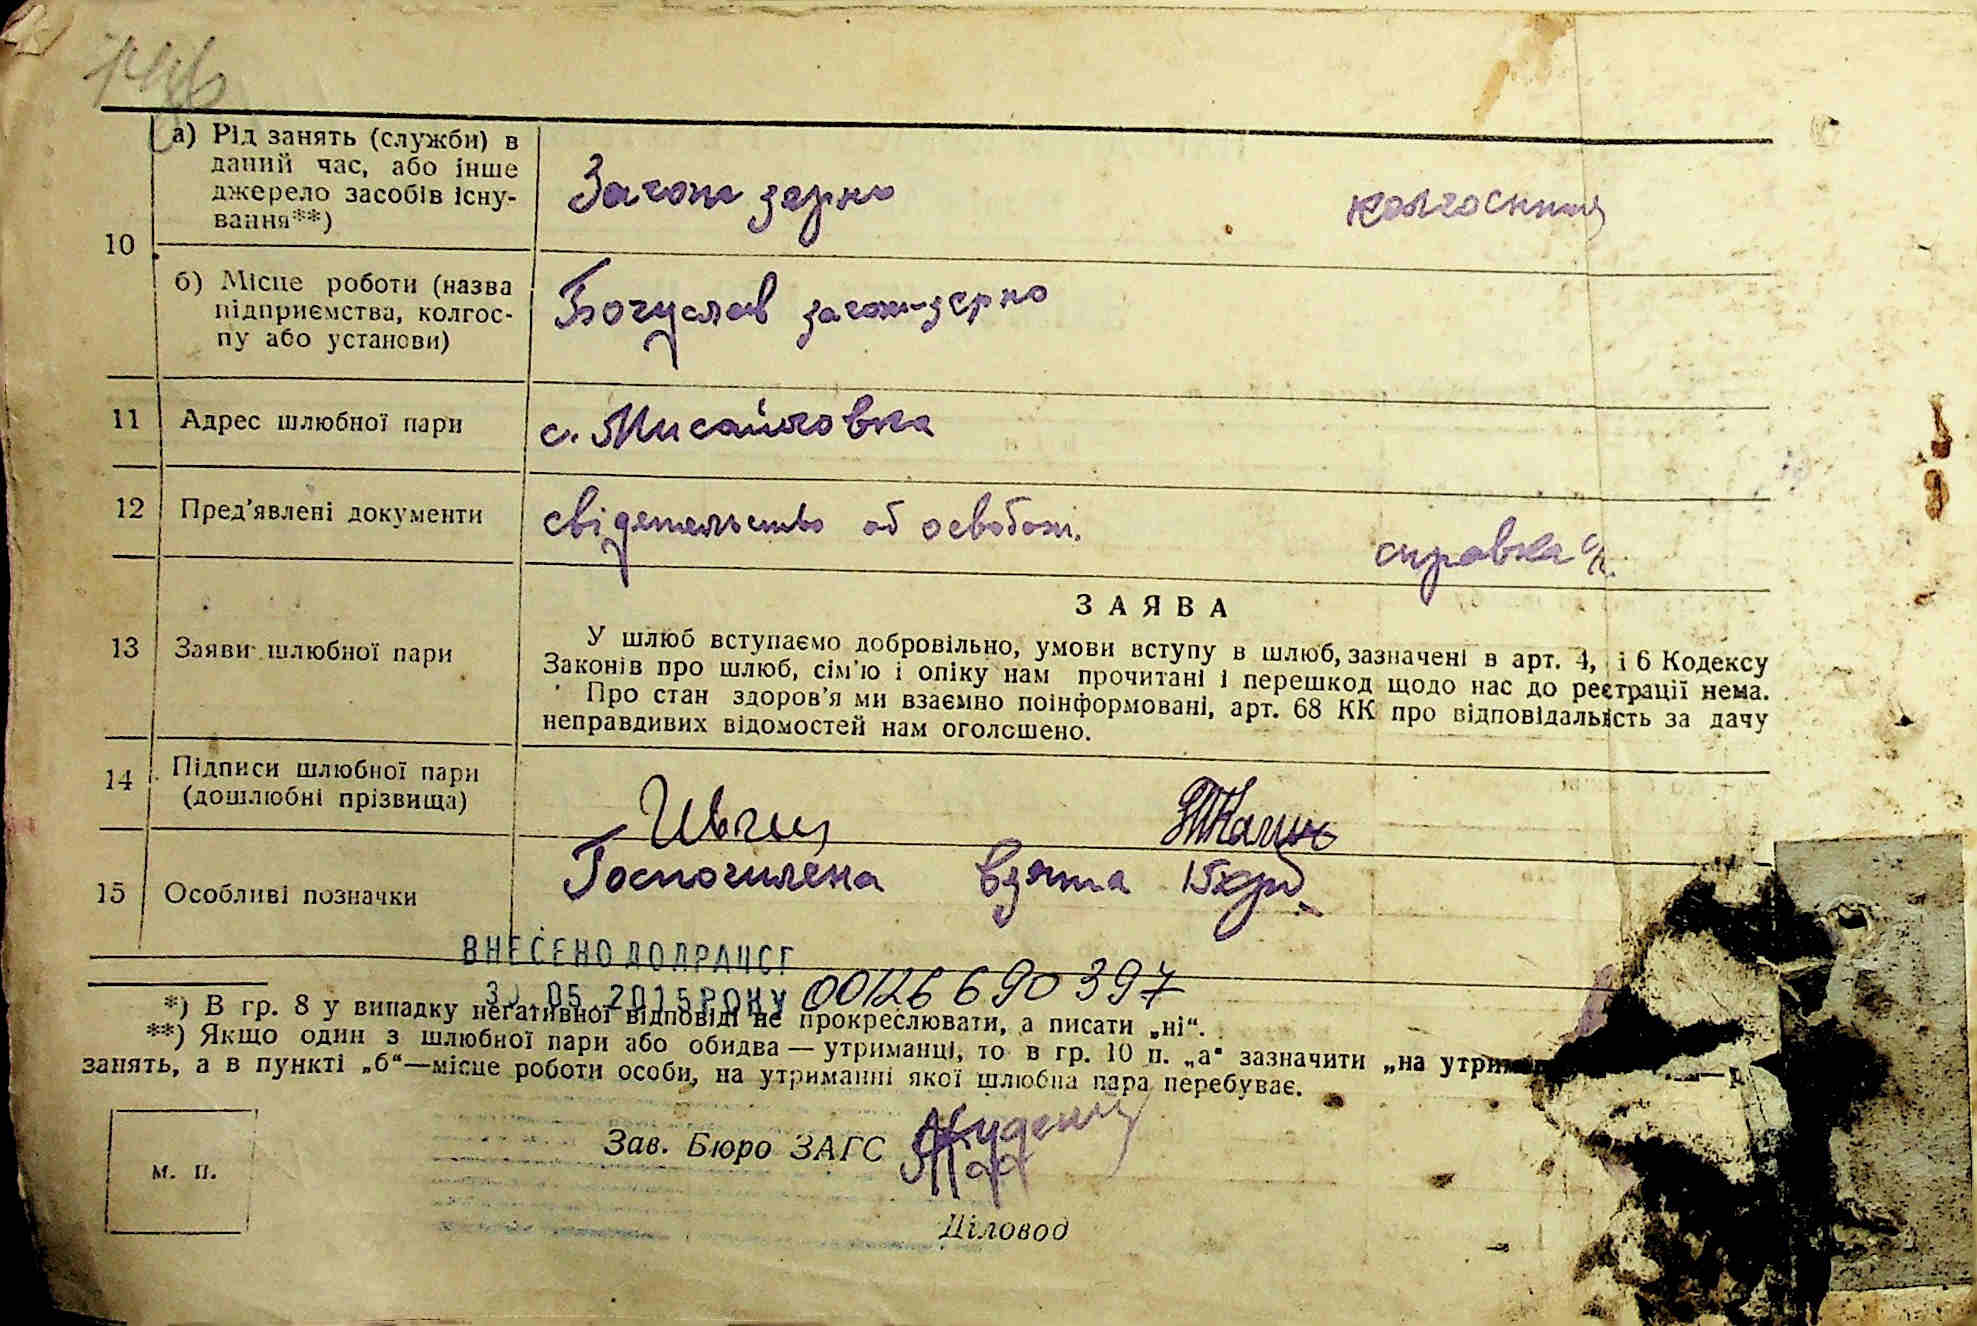 10
а) Рід занять (служби) в
даний час, або інше
джерело засобів існу-
вання**)
Загот зерно
колгоспниця
б) Місце роботи (назва
підприємства, колгос-
пу або установи)
Богуслав заготзерно
11 Адрес шлюбної пари
с. Мисайловка
12 Пред'явлені документи
свідетельство об освобож.
справка с/р.
13 Заяви шлюбної пари
ЗАЯВА
У шлюб вступаємо добровільно, умови вступу в шлюб, зазначені в арт. 4, і 6 Кодексу
Законів про шлюб, сім'ю і опіку нам прочитані і перешкод щодо нас до реєтрації нема.
Про стан здоров'я ми взаємно поінформовані, арт. 68 КК про відповідальність за дачу
неправдивих відомостей нам оголошено.
14 Підписи шлюбної пари
(дошлюбні прізвища)
15 Особливі позначки
взята 15 крб.
ВНЕСЕНО ДО ДРАЦСГ
30.05.2015 РОКУ 00126690397
*) В гр. 8 у випадку негативної відповіді не прокреслювати, а писати „ні“.
**) Якщо один з шлюбної пари або обидва — утриманці, то в гр. 10 п. „а“ зазначити „на
занять, а в пункті „б“—місце роботи особи, на утриманні якої шлюбна пара перебуває.
м. п.
Зав. Бюро ЗАГС
Діловод